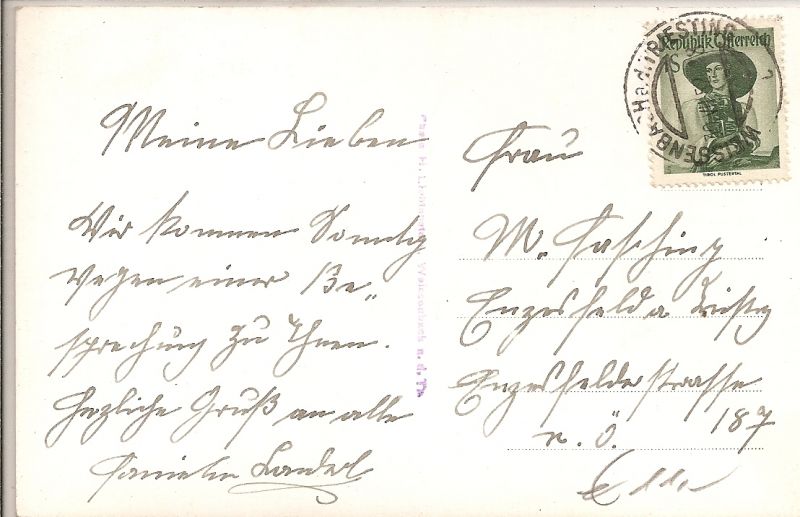 Meine Lieben
Wir kommen Sonntag
wegen einer Be„
sprechung zu Ihnen.
Herzliche Gruß an alle
Familie
Frau
M. Fasching
Enzesfeld a.
Enzesfelderstrasse
187
N. Ö.
Republik Österreich
TIROL PUSTERTAL
WEISSENBACH a.d. TRIESTING
Weissenbach a. d. Tr.